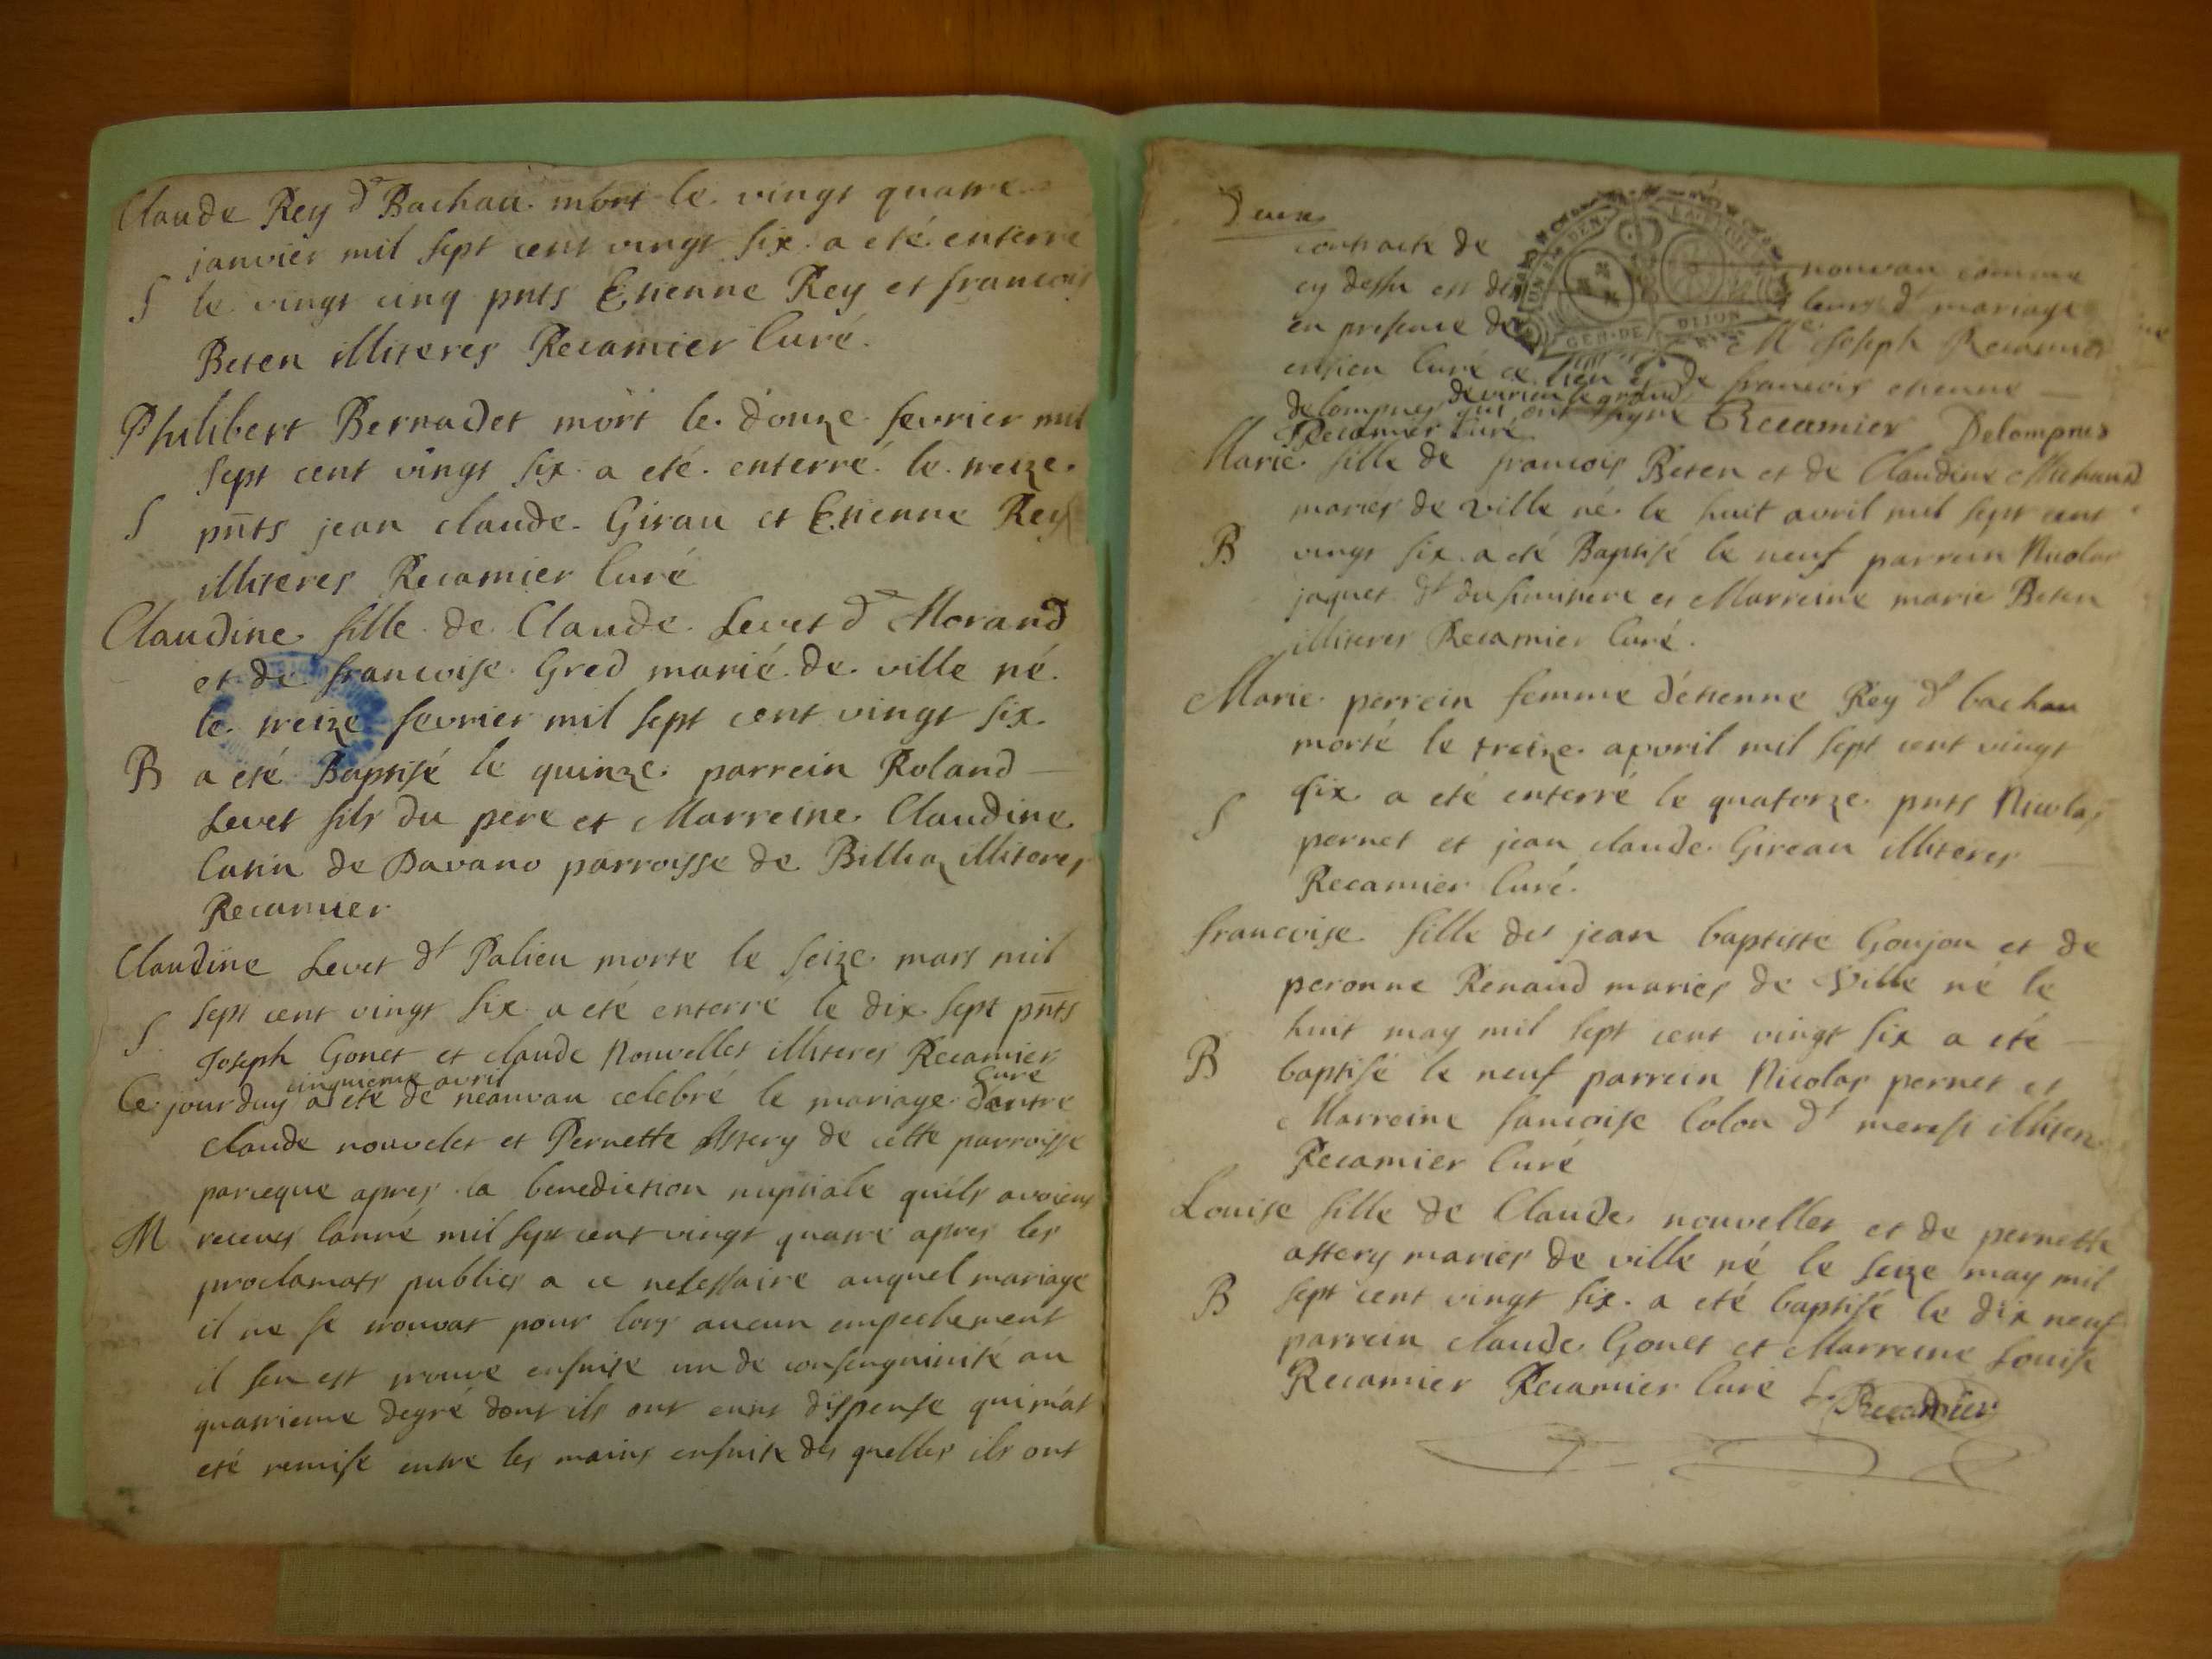 Claude Rey dt Bachau mort le vingt quatre
janvier mil sept cent vingt six a eté enterre
S le vingt cinq pnts Etienne Rey et francois
Beten illiteres Recamier Curé.
Philibert Bernadet mort le douze fevrier mil
sept cent vingt six a eté enterré le treize
S pnts jean claude Girau et Etienne Rey
illiteres Recamier Curé
Claudine fille de Claude Levet dt Morand
et de francoise Gred marié de ville né
le treize fevrier mil sept cent vingt six
B a eté Baptisé le quinze parrein Roland
Levet fils du pere et Marreine Claudine
Catin de Davano parroisse de Billia illiteres
Recamier
Claudine Levet dt Palieu morte le seize mars mil
sept cent vingt six a eté enterré le dix sept pnts
S Joseph Gonet et claude Nouvellet illiteres Recamier
Curé
cinquieme avril
Ce jourduy a eté de neauvau celebré le mariage dentre
claude nouvelet et Pernette Assery de cette parroisse
parceque apres la benediction nuptiale quils avoient
M receus lanné mil sept cent vingt quatre apres les
proclamats publies a ce necessaire auquel mariage
il ne se trouvat pour lors aucun empechement
il sen est trouve ensuite un de consenguinité au
quatrieme degré dont ils ont eunt dispense qui mat
eté remise entre les mains ensuite des quelles ils ont
Deux
contracte de nouvau comme
cy dessu est dit leurs dt mariage
en presence de Me Joseph Recamier
entien Curé ce lien et de francois etienne
de virieu le grand
delompnes qui ont signé Recamier Delompnes
Recamier Curé
Marie fille de francois Beten et de Claudine Michaud
mariés de ville né le huit avril mil sept cent
B vingt six a eté Baptisé le neuf parrein Nicolas
jaquet dt du simitiere et Marreine marie Beten
illiteres Recamier Curé.
Marie perrein femme d'étienne Rey dt bachau
morté le treize apvril mil sept cent vingt
six a eté enterré le quatorze pnts Nicolas
S pernet et jean claude Gireau illiteres
Recamier Curé.
francoise fille de jean baptiste Goujon et de
peronne Renaud mariés de Ville né le
huit may mil sept cent vingt six a eté
B baptisé le neuf parrein Nicolas pernet et
Marreine francoise Colon dt illiteres
Recamier Curé
Louise fille de Claude nouvellet et de pernette
assery mariés de ville né le seize may mil
B sept cent vingt six a eté baptisé le dix neuf
parrein claude Gonet et Marreine Louise
Recamier Recamier Curé L. Recamier
GEN·DE DIJON